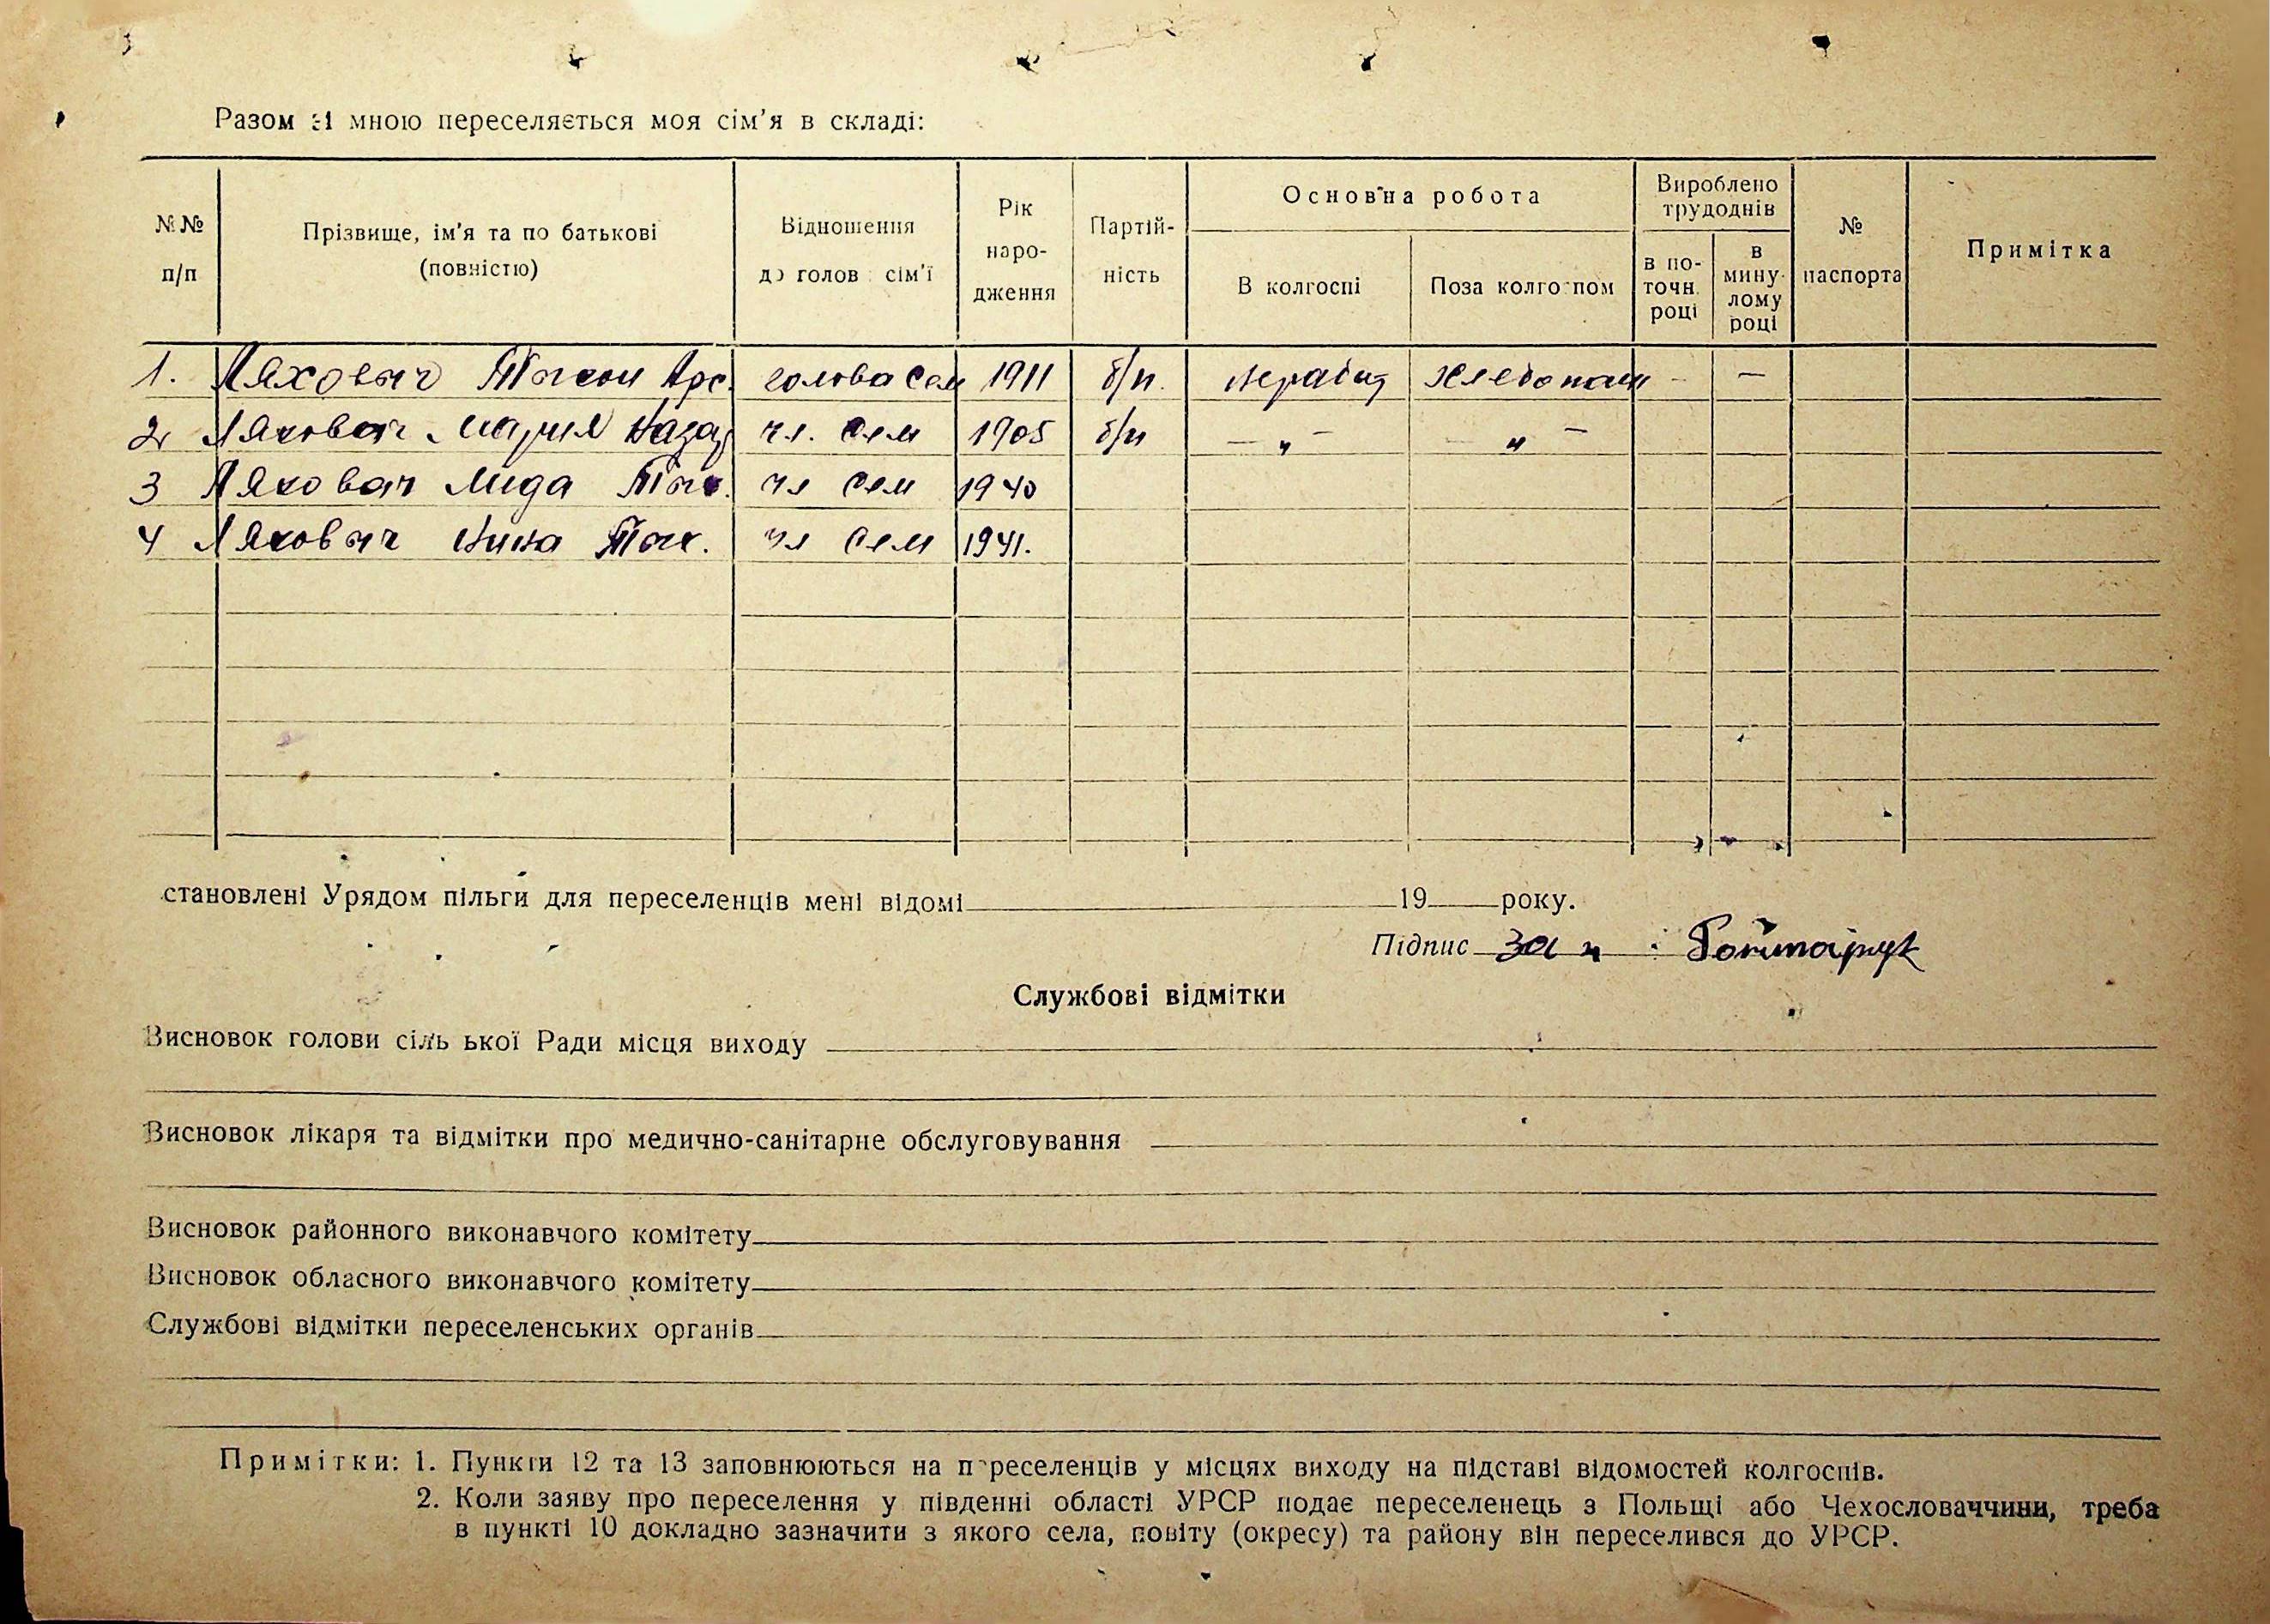 Разом зі мною переселяється моя сім'я в складі:
№№ п/п
Прізвище, ім'я та по батькові (повністю)
Відношення до голов сім'ї
Рік народження
Партійність
Основна робота
В колгоспі
Поза колго пом
Вироблено трудоднів
в поточн. році
в минулому році
№ паспорта
Примітка
1. Ляхович Арс. голова сем 1911 б/п. — —
2 Ляхович Мария Назар чл. сем 1905 б/п — „ — — „ —
3 Ляхович Лида чл сем 1940
4 Ляхович Нина чл сем 1941.
становлені Урядом пільги для переселенців мені відомі 19 року.
Підпис за
Службові відмітки
Висновок голови сіль ької Ради місця виходу
Висновок лікаря та відмітки про медично-санітарне обслуговування
Висновок районного виконавчого комітету
Висновок обласного виконавчого комітету
Службові відмітки переселенських органів
Примітки: 1. Пункти 12 та 13 заповнюються на п реселенців у місцях виходу на підставі відомостей колгоспів.
2. Коли заяву про переселення у південні області УРСР подає переселенець з Польщі або Чехословаччини, треба
в пункті 10 докладно зазначити з якого села, повіту (окресу) та району він переселився до УРСР.